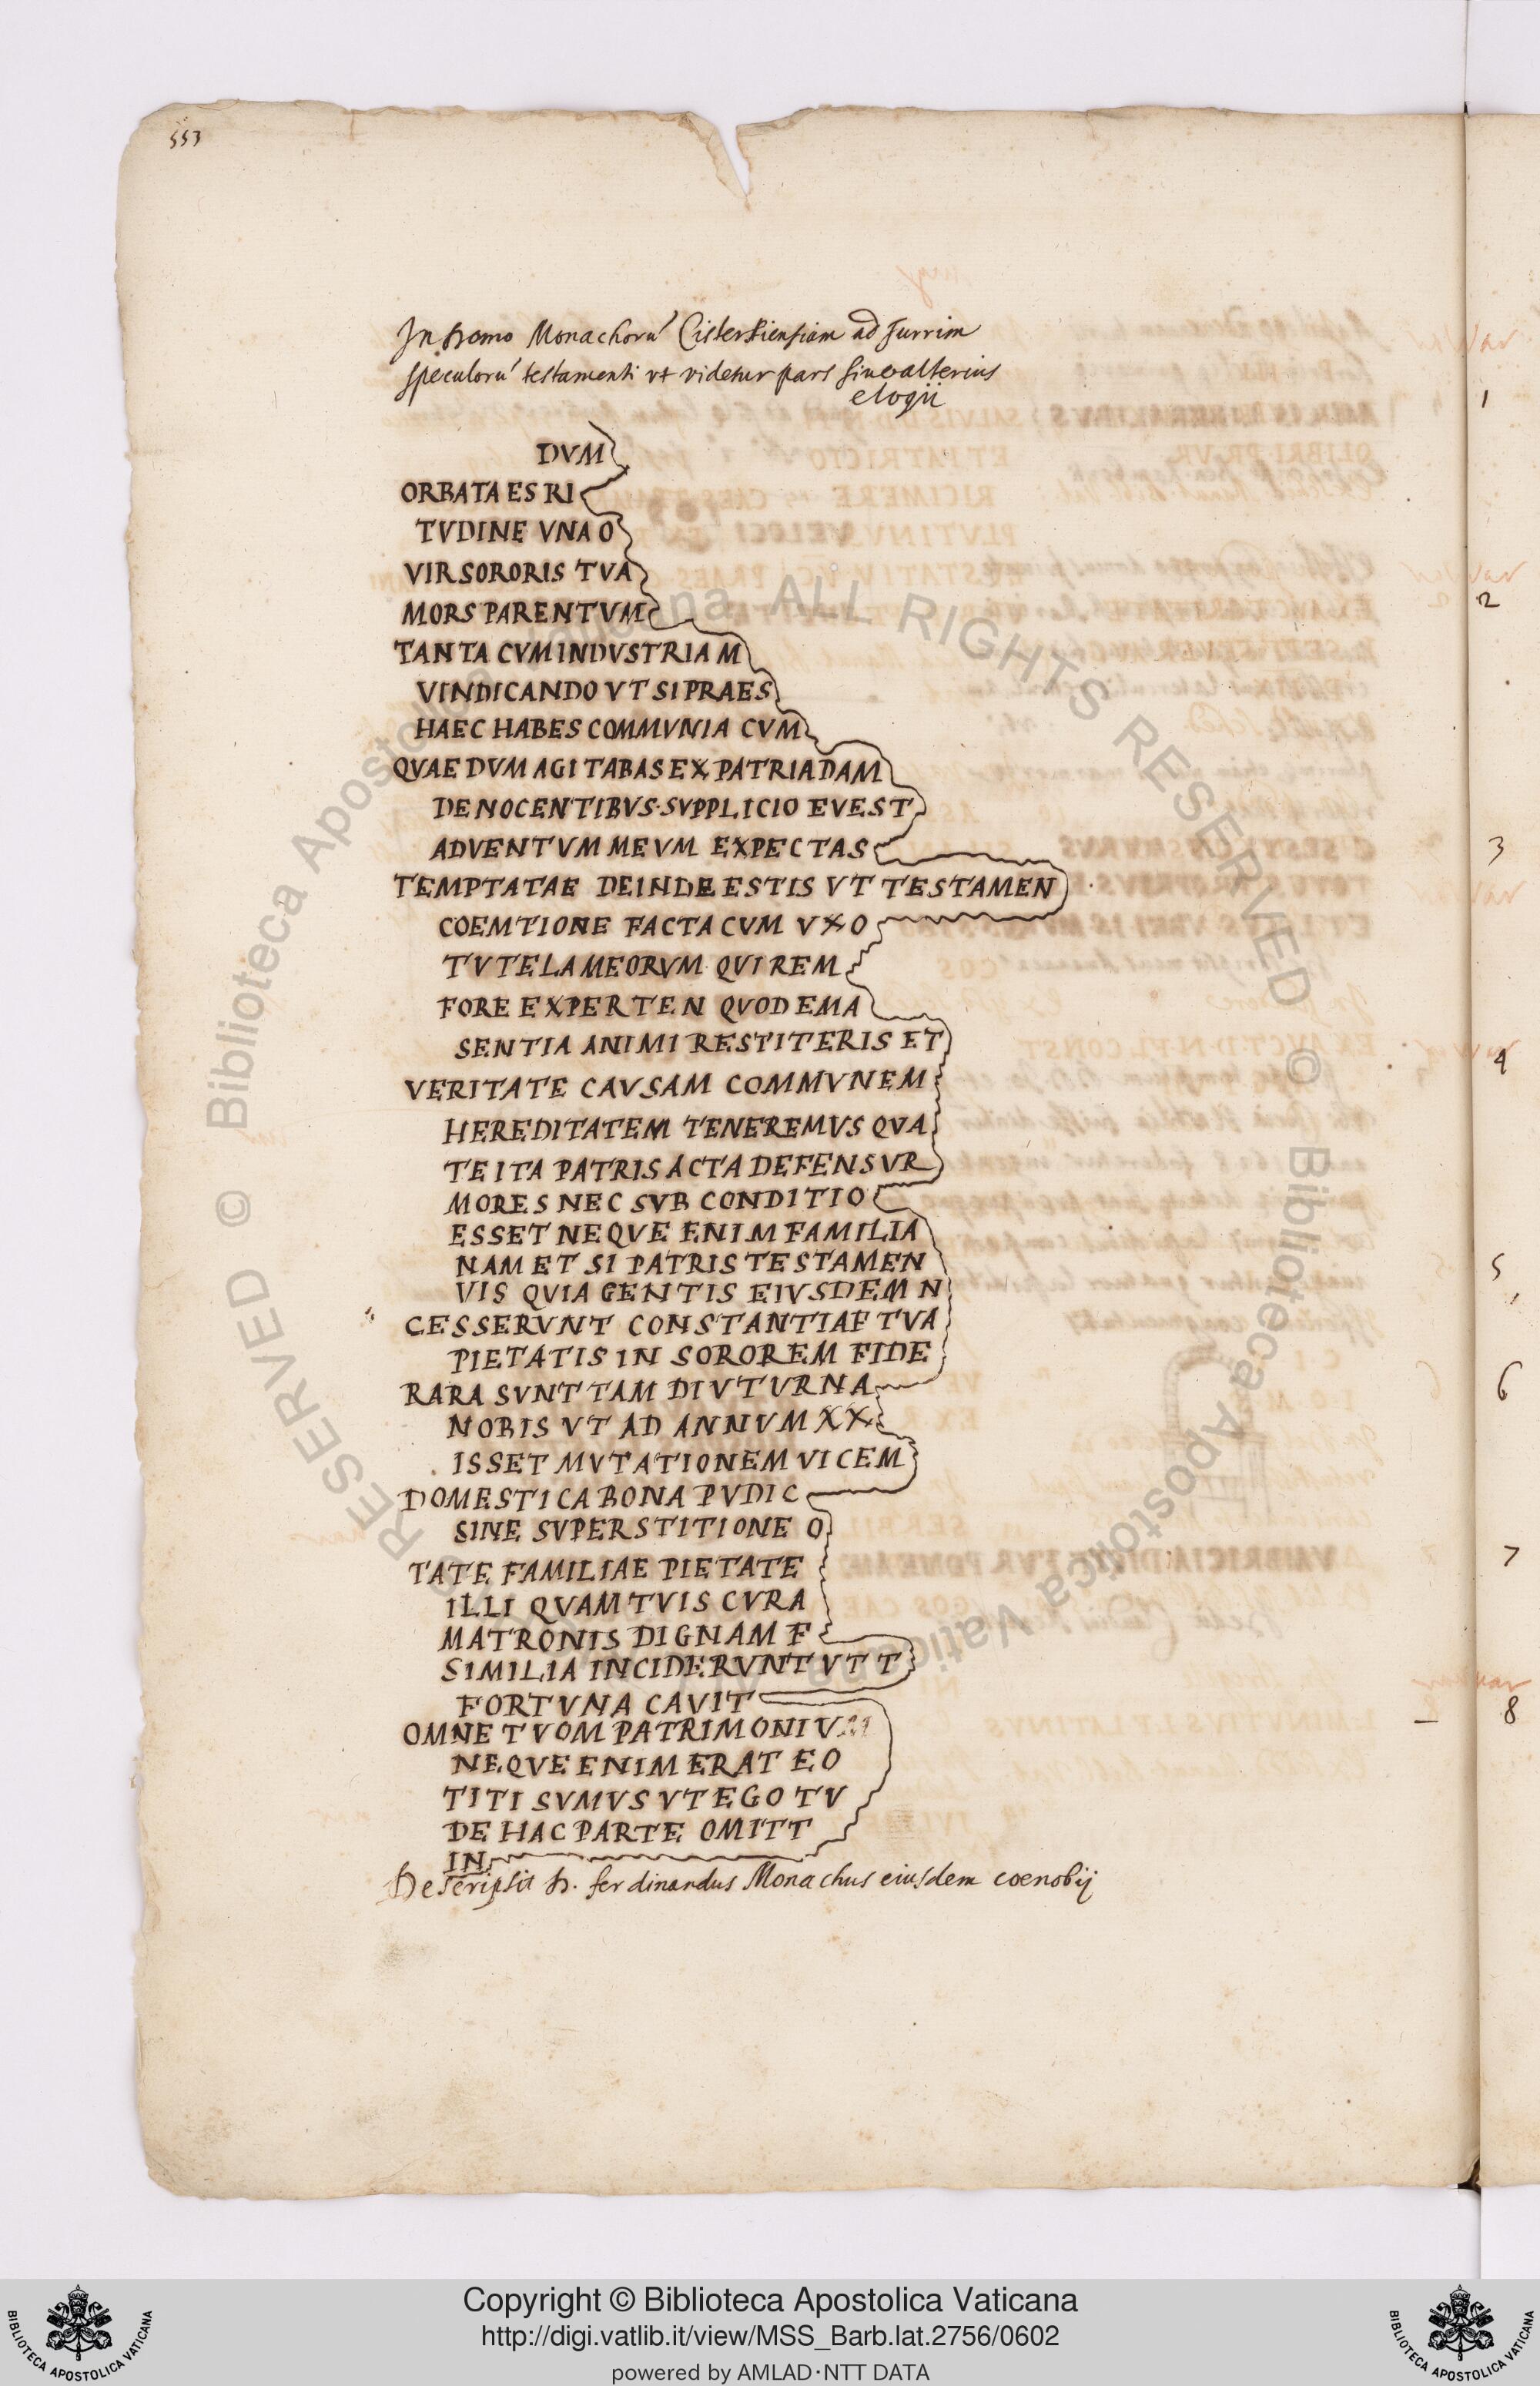 553
In domo Monachorũ Cisterciensium ad Turrim
speculorũ testamenti vt videtur pars siue alterius
elogii
DVM
ORBATA ES RI
TVDINE VNA O
VIR SORORIS TVA
MORS PARENTVM
TANTA CVM INDVSTRIA M
VINDICANDO VT SI PRAES
HAEC HABES COMMVNIA CVM
QVAE DVM AGITABAS EX PATRIA DAM
DE NOCENTIBVS·SVPPLICIO EVEST
ADVENTVM MEVM EXPECTAS
TEMPTATAE DEINDE ESTIS VT TESTAMEN
COEMTIONE FACTA CVM VXO
TVTELA MEORVM·QVI REM
FORE EXPERTEN QVOD EMA
SENTIA ANIMI RESTITERIS ET
VERITATE CAVSAM COMMVNEM
HEREDITATEM TENEREMVS QVA
TE ITA PATRIS ACTA DEFENSVR
MORES NEC SVB CONDITIO
ESSET NEQVE ENIM FAMILIA
NAM ET SI PATRIS TESTAMEN
VIS QVIA GENTIS EIVSDEM N
CESSERVNT CONSTANTIAE TVA
PIETATIS IN SOROREM FIDE
RARA SVNT TAM DIVTVRNA
NOBIS VT AD ANNVM XX
ISSET MVTATIONEM VICEM
DOMESTICA BONA PVDIC
SINE SVPERSTITIONE O
TATE FAMILIAE PIETATE
ILLI QVAM TVIS CVRA
MATRONIS DIGNAM F
SIMILIA INCIDERVNT VT T
FORTVNA CAVIT
OMNE TVOM PATRIMONIVM
NEQVE ENIM ERAT EO
TITI SVMVS VT EGO TV
DE HAC PARTE OMITT
IN
Descripsit D. ferdinandus Monachus eiusdem coenobij
1
2
3
4
5
6
7
8
© Biblioteca Apostolica Vaticana ALL RIGHTS RESERVED
Copyright © Biblioteca Apostolica Vaticana
http://digi.vatlib.it/view/MSS_Barb.lat.2756/0602
powered by AMLAD·NTT DATA
BIBLIOTECA APOSTOLICA VATICANA
BIBLIOTECA APOSTOLICA VATICANA